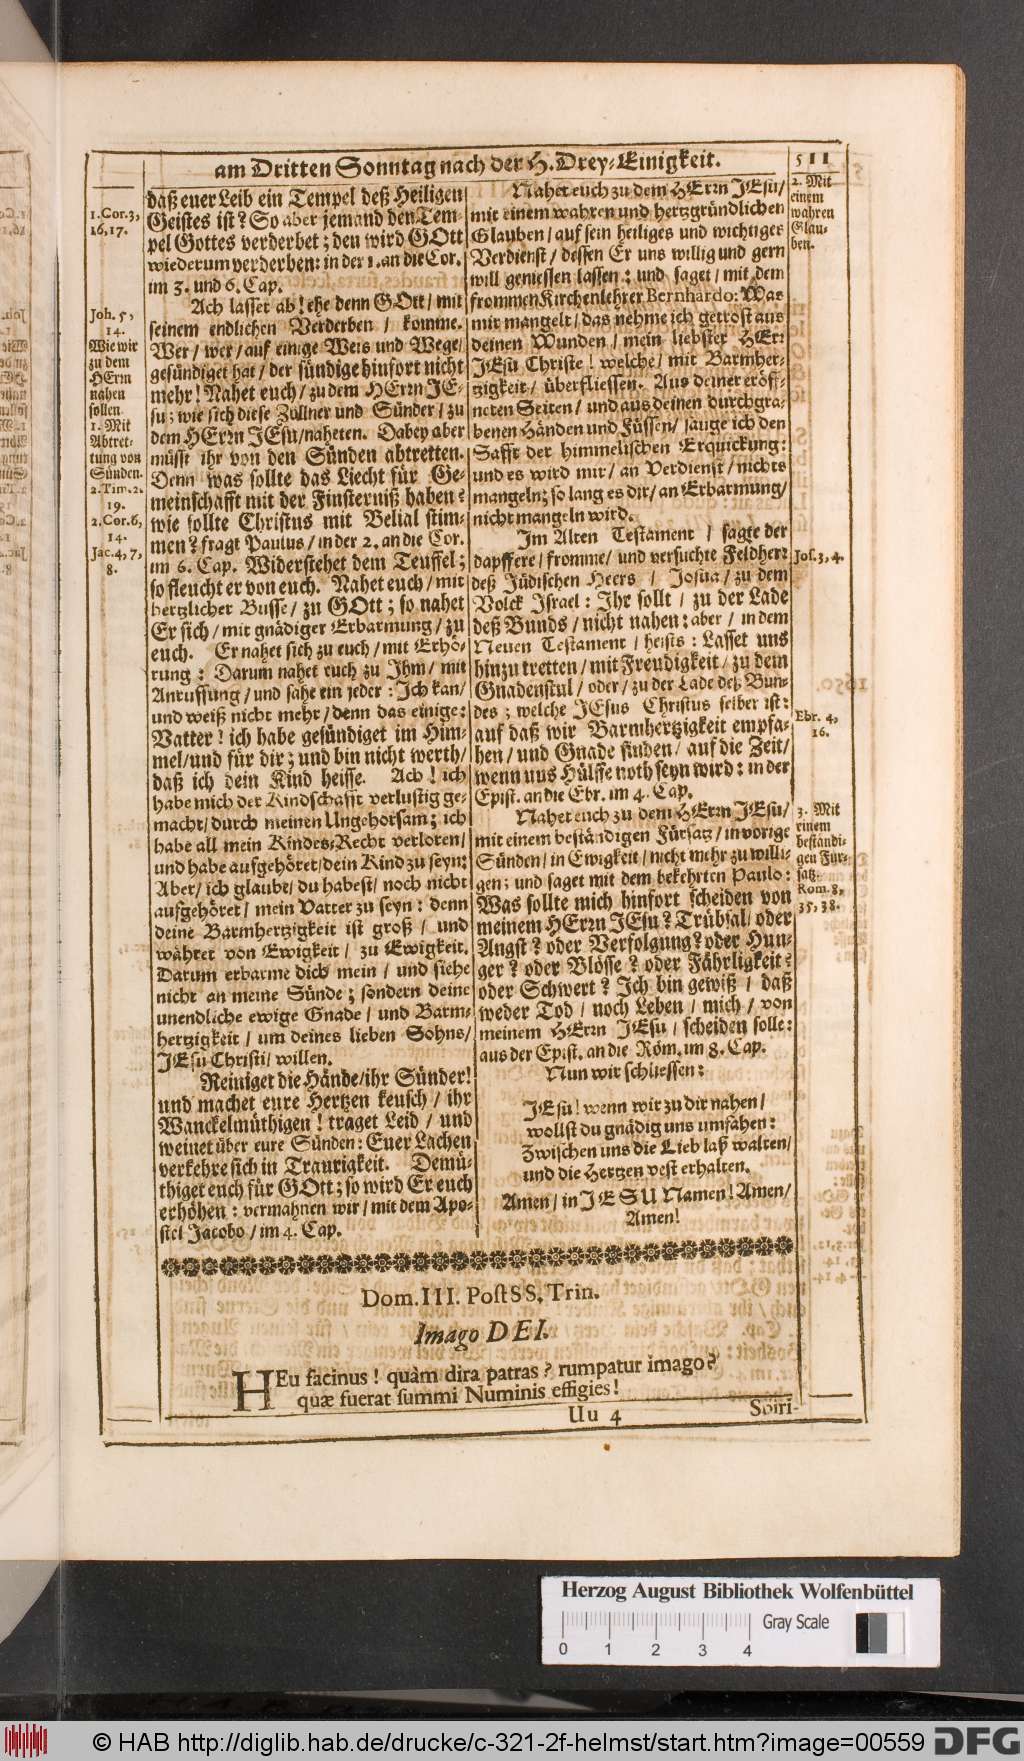 am Dritten Sonntag nach der H. Drey-Einigkeit.
511
1. Cor. 3,
16, 17.
Joh. 5,
14.
Wie wir
zu dem
HErrn
nahen
sollen
1. Mit
Abtret-
tung von
Sünden.
2. Tim. 2.
19.
2. Cor. 6,
14.
Jac. 4, 7,
8.
daß euer Leib ein Tempel deß Heiligen
Geistes ist? So aber jemand den Tem-
pel Gottes verderbet; den wird GOtt
wiederum verderben: in der 1. an die Cor.
im 3. und 6. Cap.
Ach lasset ab! ehe denn GOtt / mit
seinem endlichen Verderben / komme.
Wer / wer / auf einige Weis und Wege /
gesündiget hat / der sündige hinfort nicht
mehr! Nahet euch / zu dem HErrn JE-
su; wie sich diese Zöllner und Sünder / zu
dem HErrn JEsu / naheten. Dabey aber
müsst ihr von den Sünden abtretten.
Denn was sollte das Liecht für Ge-
meinschafft mit der Finsterniß haben?
wie sollte Christus mit Belial stim-
men? fragt Paulus / in der 2. an die Cor.
im 6. Cap. Widerstehet dem Teuffel;
so fleucht er von euch. Nahet euch / mit
hertzlicher Busse / zu GOtt; so nahet
Er sich / mit gnädiger Erbarmung / zu
euch. Er nahet sich zu euch / mit Erhö-
rung: Darum nahet euch zu Jhm / mit
Anruffung / und sahe ein jeder: Jch kan /
und weiß nicht mehr / denn das einige:
Vatter! ich habe gesündiget im Him-
mel / und für dir; und bin nicht werth /
daß ich dein Kind heisse. Ach! ich
habe mich der Kindschafft verlustig ge-
macht / durch meinen Ungehorsam; ich
habe all mein Kindes-Recht verloren /
und habe aufgehöret / dein Kind zu seyn:
Aber / ich glaube / du habest / noch nicht
aufgehöret / mein Vatter zu seyn: denn
deine Barmhertzigkeit ist groß / und
währet von Ewigkeit / zu Ewigkeit.
Darum erbarme dich mein / und siehe
nicht an meine Sünde; sondern deine
unendliche ewige Gnade / und Barm-
hertzigkeit / um deines lieben Sohns /
JEsu Christi / willen.
Reiniget die Hände / ihr Sünder!
und machet eure Hertzen keusch / ihr
Wanckelmüthigen! traget Leid / und
weinet über eure Sünden: Euer Lachen
verkehre sich in Traurigkeit. Demü-
thiget euch für GOtt; so wird Er euch
erhöhen: vermahnen wir / mit dem Apo-
stel Jacobo / im 4. Cap.
Nahet euch zu dem HErrn JEsu /
mit einem wahren und hertzgründlichen
Glauben / auf sein heiliges und wichtiges
Verdienst / dessen Er uns willig und gern
will geniessen lassen: und saget / mit dem
frommen Kirchenlehrer Bernhardo: Was
mir mangelt / das nehme ich getrost aus
deinen Wunden / mein liebster HErr
JEsu Christe! welche / mit Barmher-
tzigkeit / überfliessen. Aus deiner eröff-
neten Seiten / und aus deinen durchgra-
benen Händen und Füssen / sauge ich den
Safft der himmelischen Erquickung:
und es wird mir / an Verdienst / nichts
mangeln; so lang es dir / an Erbarmung /
nicht mangeln wird.
Jm Alten Testament / sagte der
dapffere / fromme / und versuchte Feldherr
deß Jüdischen Heers / Josua / zu dem
Volck Jsrael: Jhr sollt / zu der Lade
deß Bunds / nicht nahen: aber / in dem
Neuen Testament / heists: Lasset uns
hinzu tretten / mit Freudigkeit / zu dem
Gnadenstul / oder / zu der Lade deß Bun-
des; welche JEsus Christus selber ist:
auf daß wir Barmhertzigkeit empfa-
hen / und Gnade finden / auf die Zeit /
wenn uns Hülffe noth seyn wird: in der
Epist. an die Ebr. im 4. Cap.
Nahet euch zu dem HErrn JEsu /
mit einem beständigen Fürsatz / in vorige
Sünden / in Ewigkeit / nicht mehr zu willi-
gen; und saget mit dem bekehrten Paulo:
Was sollte mich hinfort scheiden von
meinem HErrn JEsu? Trübsal / oder
Angst? oder Verfolgung? oder Hun-
ger? oder Blösse? oder Fährligkeit?
oder Schwert? Jch bin gewiß / daß
weder Tod / noch Leben / mich / von
meinem HErrn JEsu / scheiden solle:
aus der Epist. an die Röm. im 8. Cap.
Nun wir schliessen:
JEsu! wenn wir zu dir nahen /
wollst du gnädig uns umfahen:
Zwischen uns die Lieb laß walten /
und die Hertzen vest erhalten.
Amen / in JESU Namen! Amen /
Amen!
2. Mit
einem
wahren
Glau-
ben.
Jos. 3, 4.
Ebr. 4,
16.
3. Mit
einem
beständi-
gen Für-
satz.
Rom. 8,
35, 38.
Dom. III. Post SS. Trin.
Imago DEI.
HEu facinus! quàm dira patras? rumpatur imago?
quæ fuerat summi Numinis effigies!
Uu 4
Spiri-
Herzog August Bibliothek Wolfenbüttel
Gray Scale
0 1 2 3 4
© HAB http://diglib.hab.de/drucke/c-321-2f-helmst/start.htm?image=00559
DFG